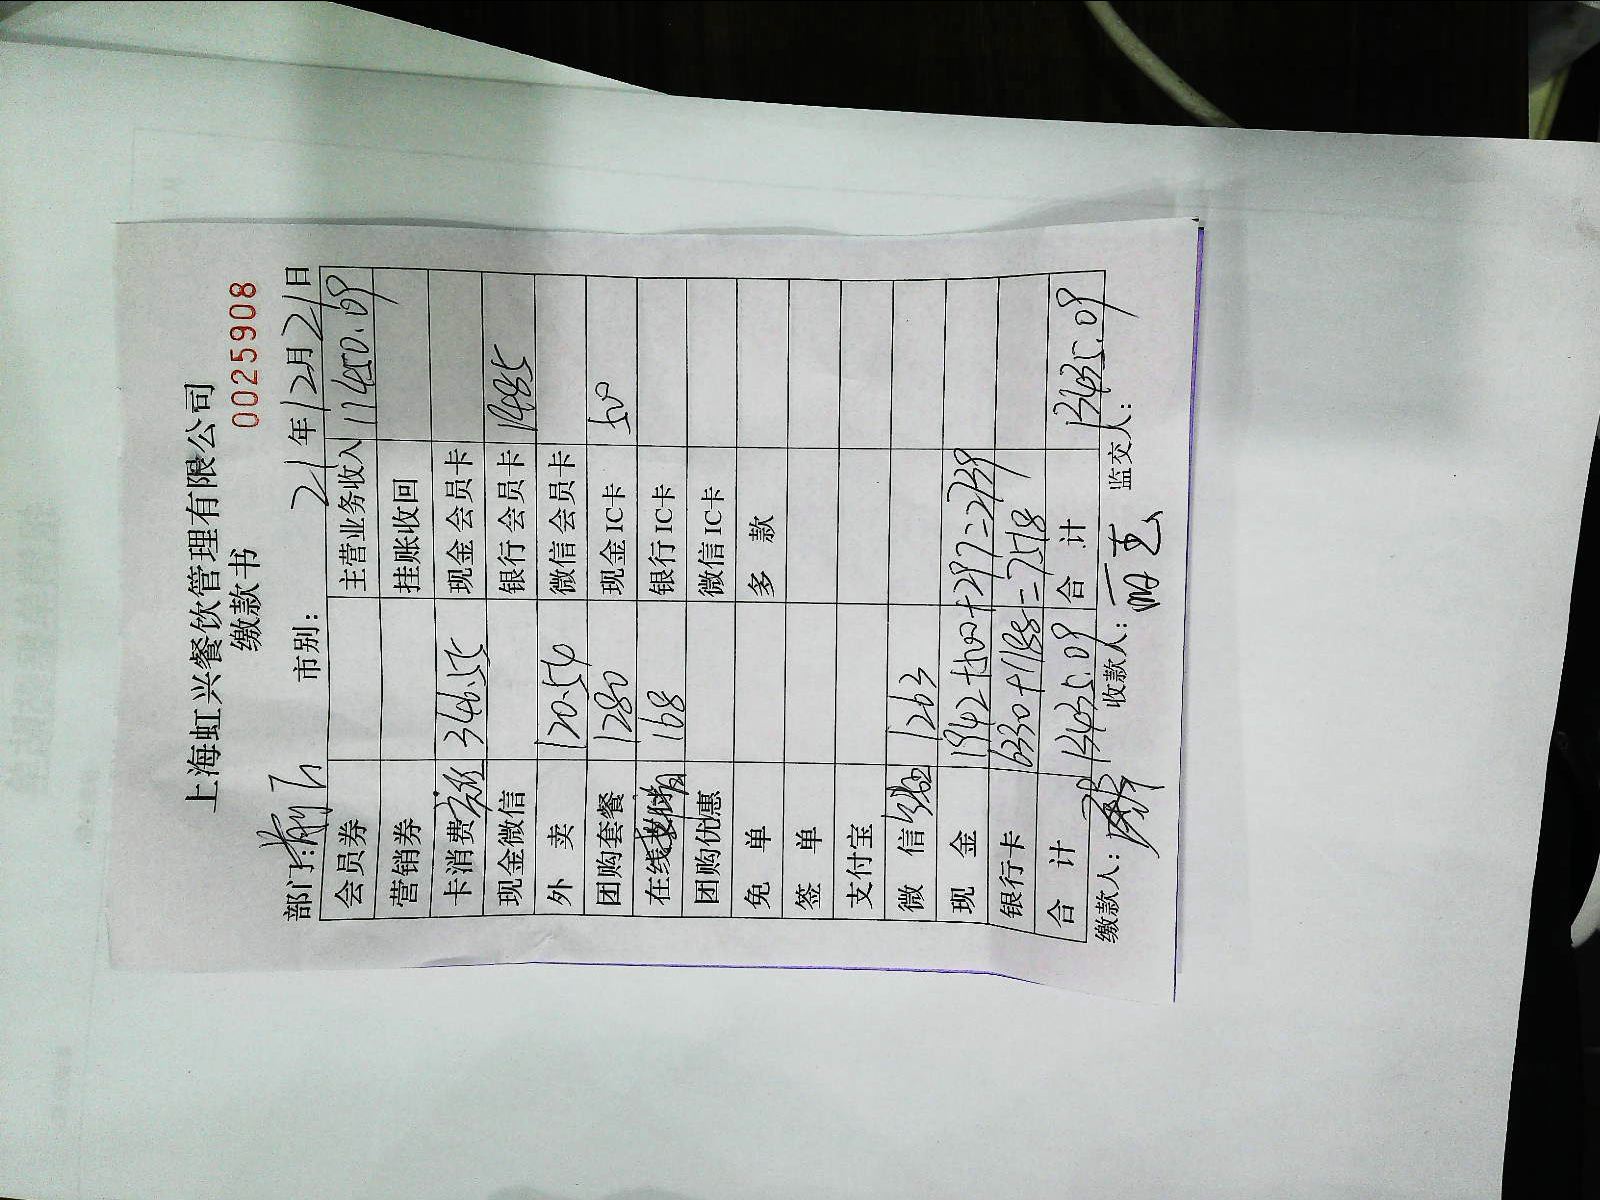 上海虹兴餐饮管理有限公司
缴款书 0025908
部门: 市别: 21年12月21日
会员券 主营业务收入 11450.09
营销券 挂账收回
卡消费 346.55 现金会员卡
现金微信 银行会员卡 1485
外卖 120.54 微信会员卡
团购套餐 1280 现金IC卡 500
在线 168 银行IC卡
团购优惠 微信IC卡
免单 多款
签单
支付宝
微信 1263
现金 1942+500+297=2739
银行卡 6330+1188=7518
合计 13435.09 合计 13435.09
缴款人: 收款人: 监交人: